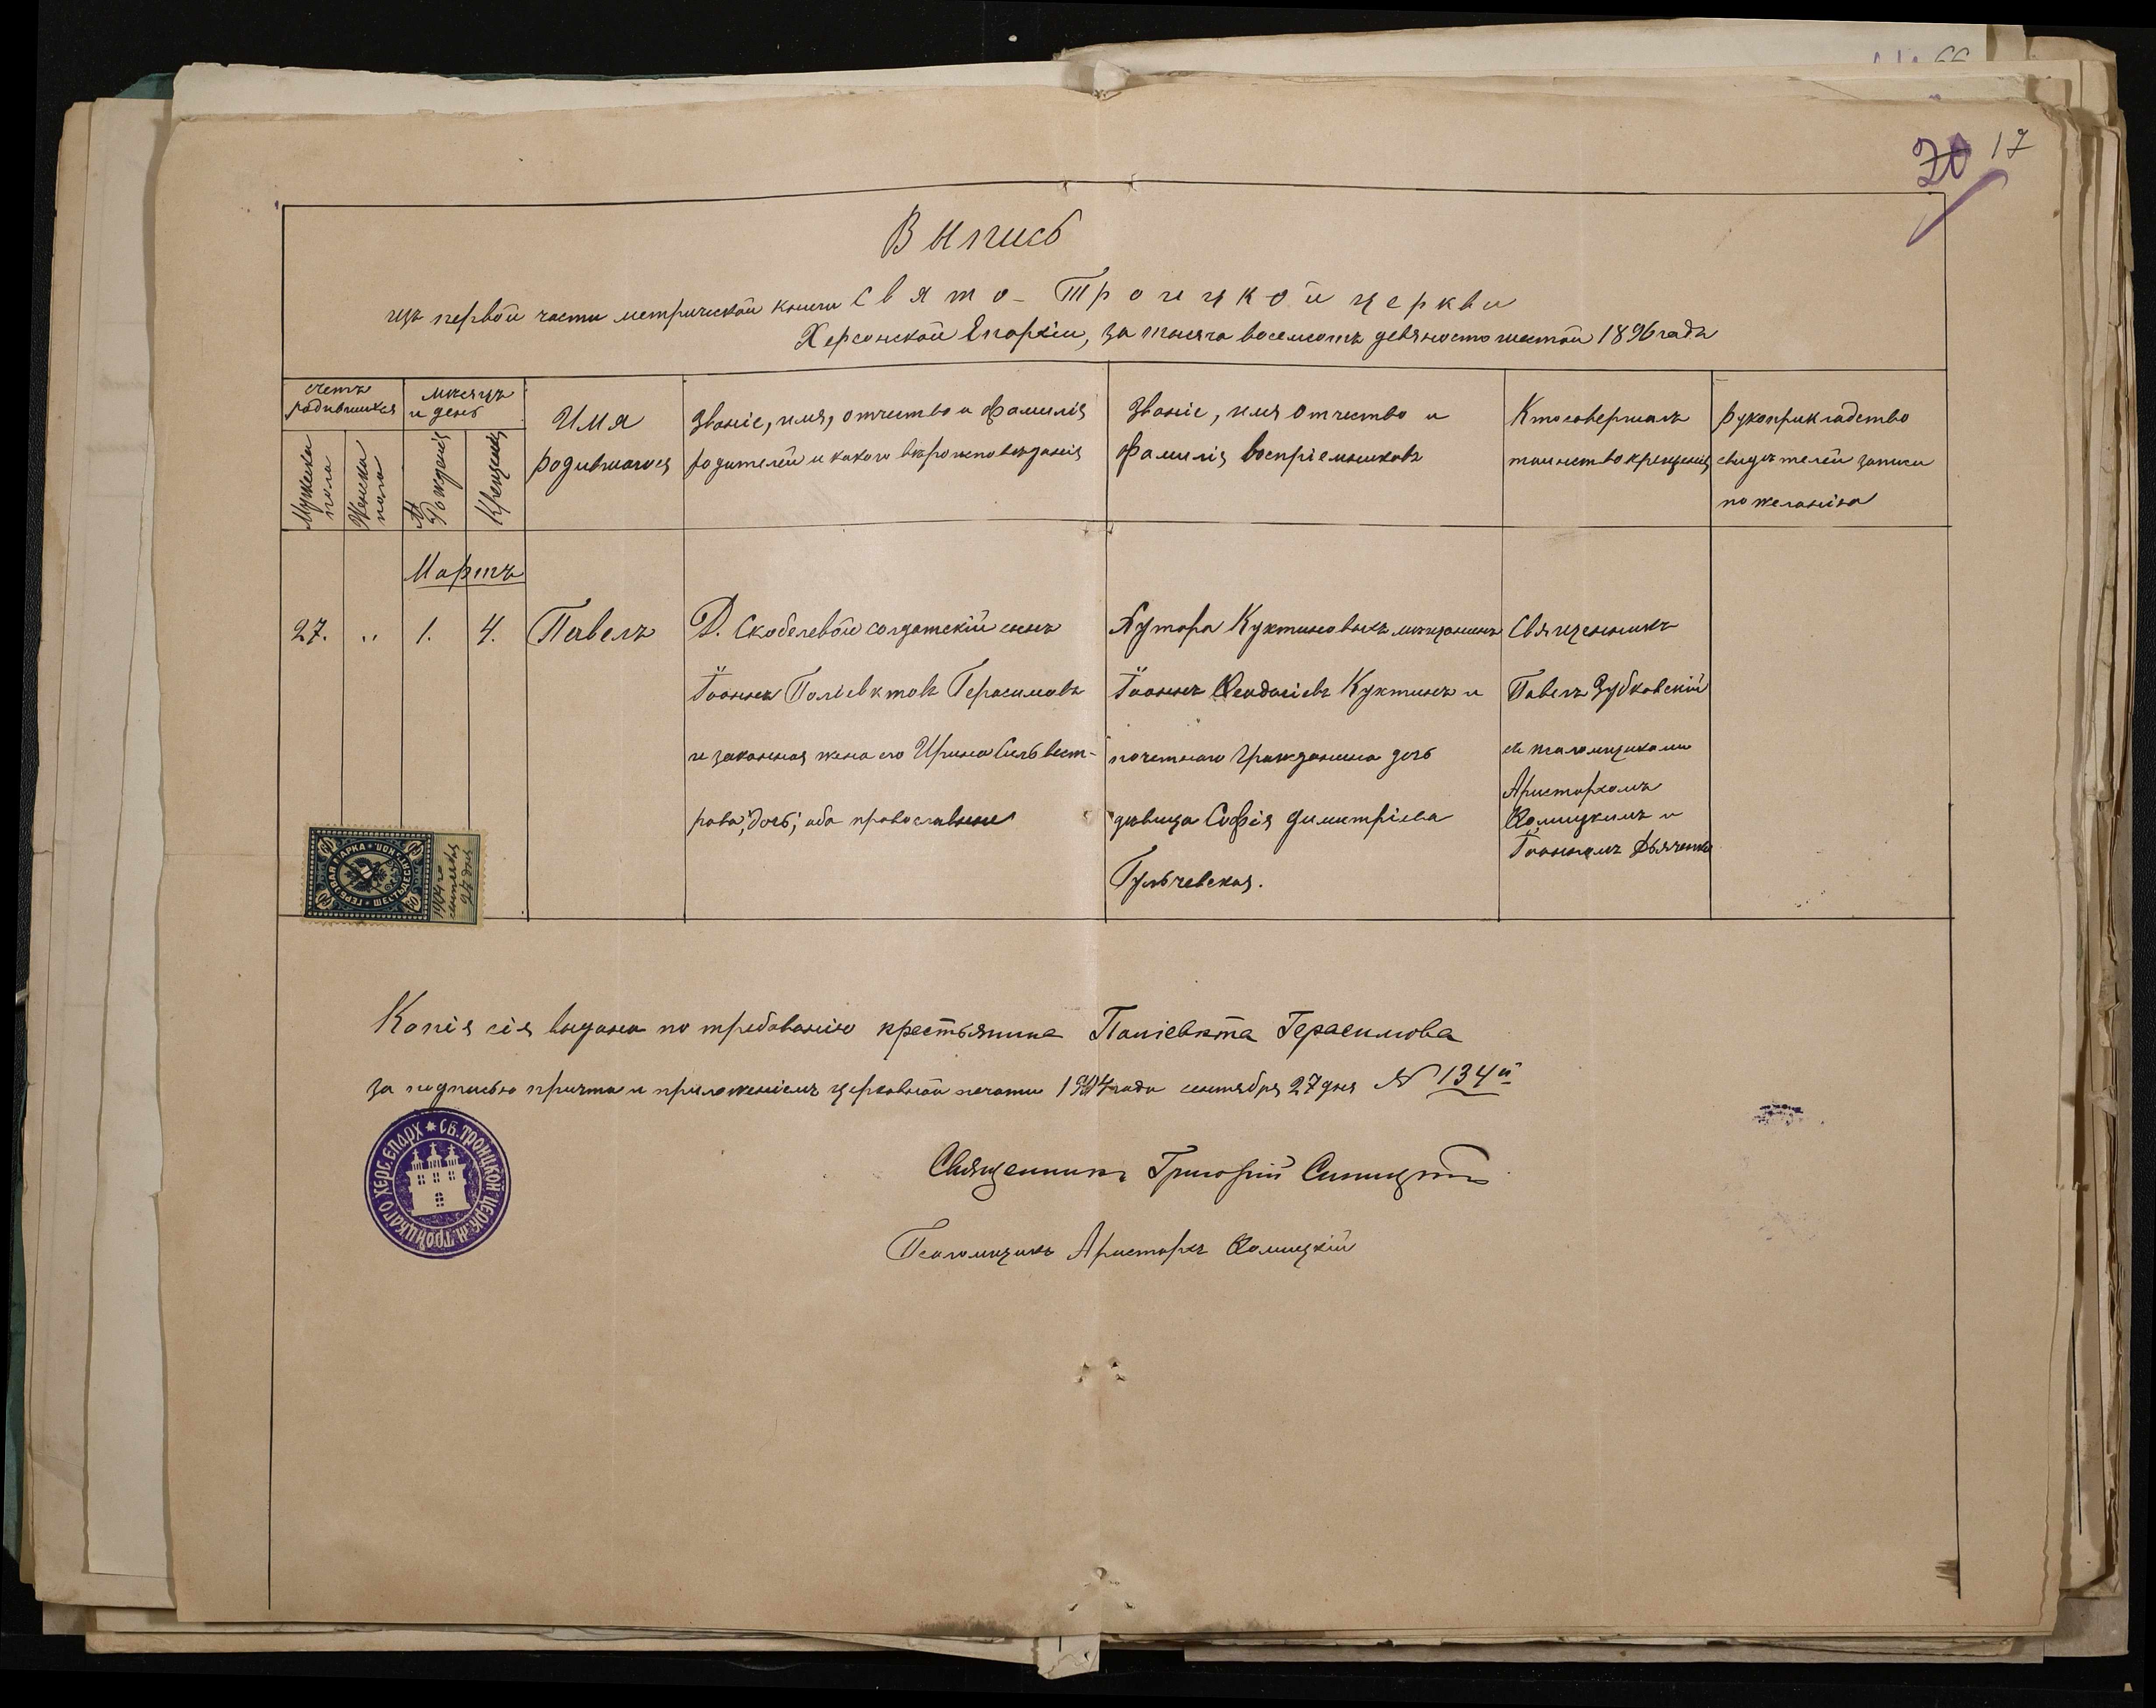 66
70 17
Выпись
изъ первой части метрической книги Свято-Троицкой церкви
Херсонской Епархіи, за тысяча восемсотъ девяносто шестой 1896 годъ
счетъ родившихся
мѣсяцъ и день
Мужеска пола
Женска пола
Рожденія
Крещенія
Имя
родившагося
Званіе, имя, отчество и фамилія
родителей и какого вѣроисповѣданія
Званіе, имя отчество и
фамилія воспріемниковъ
Кто совершалъ
таинство крещенія
Рукоприкладство
свидѣтелей записи
по желанію
Мартъ
27. „ 1. 4. Павелъ
Д. Скобелевой солдатскій сынъ
Іоаннъ Поліевктовъ Герасимовъ
и законная жена его Ирина Сильвест-
рова, дочь; оба православные
Хутора Куктиновыхъ мѣщанинъ
Іоаннъ Ѳеодосіевъ Куктинъ и
почетнаго гражданина дочь
дѣвица Софія Димитріева
Гульчевская.
Священникъ
Павелъ Зубковскій
съ псаломщиками
Аристархомъ
Ѳомицкимъ и
Іоанномъ Дьяченко
ГЕРБОВАЯ МАРКА ШЕСТЬДЕСЯТЪ КОП.
60 60 60 60
1904 го
сентября
27 дня
Копія сія выдана по требованію крестьянина Поліевкта Герасимова
за подписью причта и приложеніемъ церковной печати 1904 года сентября 27 дня № 134й
СВ. ТРОИЦКОЙ ЦЕРК. М. ТРОИЦКАГО ХЕРС. ЕПАРХ
Священникъ Григорій Синицкій
Псаломщикъ Аристархъ Ѳомицкій